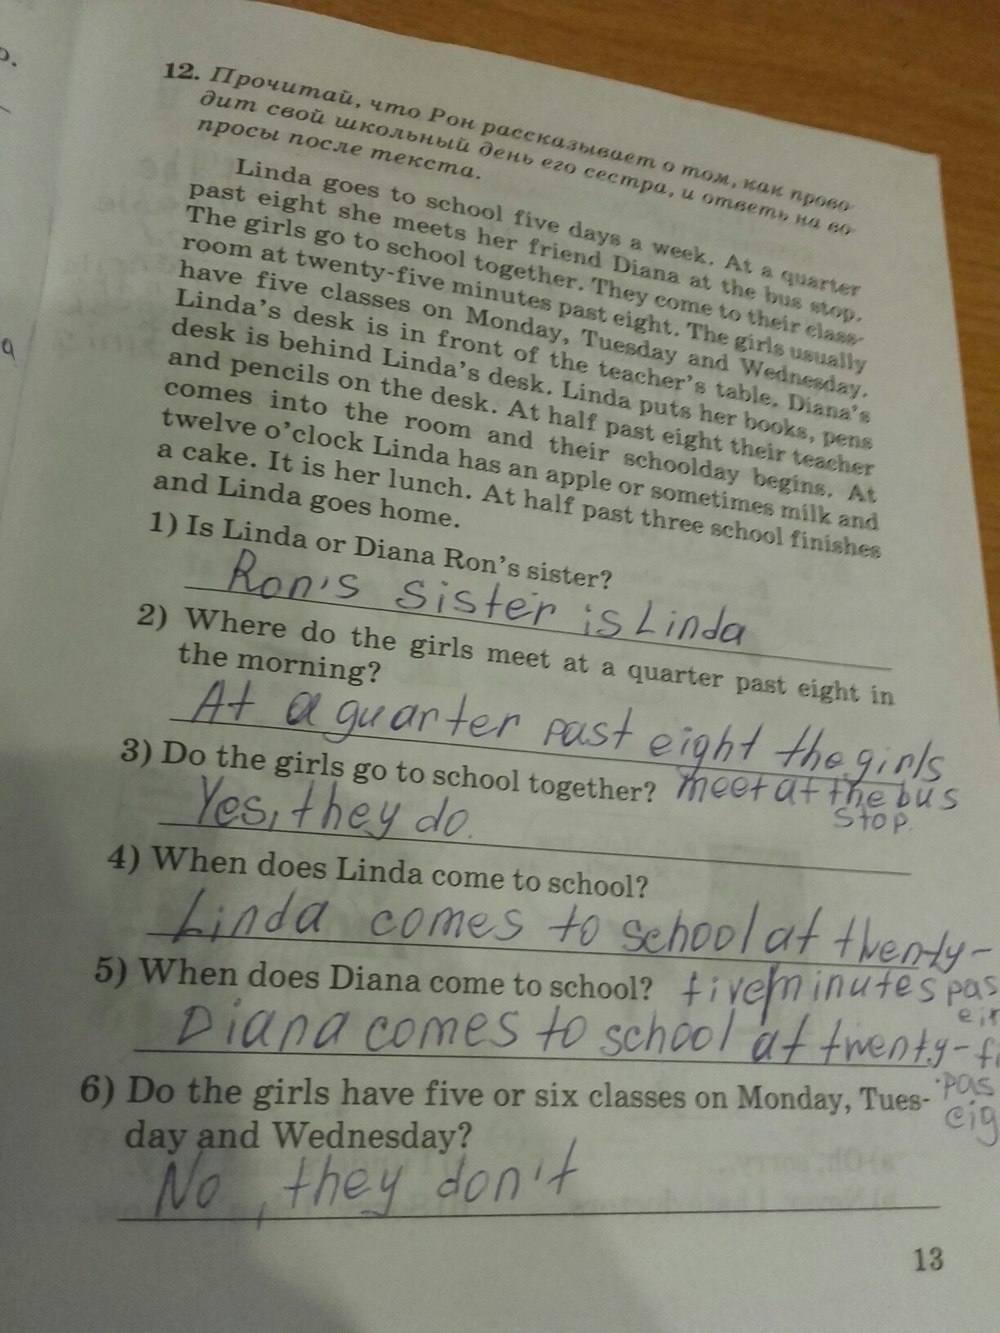 12. Прочитай, что Рон рассказывает о том, как прово-
дит свой школьный день его сестра, и ответь на во-
просы после текста.
Linda goes to school five days a week. At a quarter
past eight she meets her friend Diana at the bus stop.
The girls go to school together. They come to their class-
room at twenty-five minutes past eight. The girls usually
have five classes on Monday, Tuesday and Wednesday.
Linda's desk is in front of the teacher's table. Diana's
desk is behind Linda's desk. Linda puts her books, pens
and pencils on the desk. At half past eight their teacher
comes into the room and their schoolday begins. At
twelve o'clock Linda has an apple or sometimes milk and
a cake. It is her lunch. At half past three school finishes
and Linda goes home.
1) Is Linda or Diana Ron's sister?
Ron's sister is Linda
2) Where do the girls meet at a quarter past eight in
the morning?
At a quarter past eight the girls
meet at the bus
stop.
3) Do the girls go to school together?
Yes, they do.
4) When does Linda come to school?
Linda comes to school at twenty-
five minutes pas
5) When does Diana come to school?
Diana comes to school at twenty-fi
pas
eig
6) Do the girls have five or six classes on Monday, Tues-
day and Wednesday?
No, they don't
13